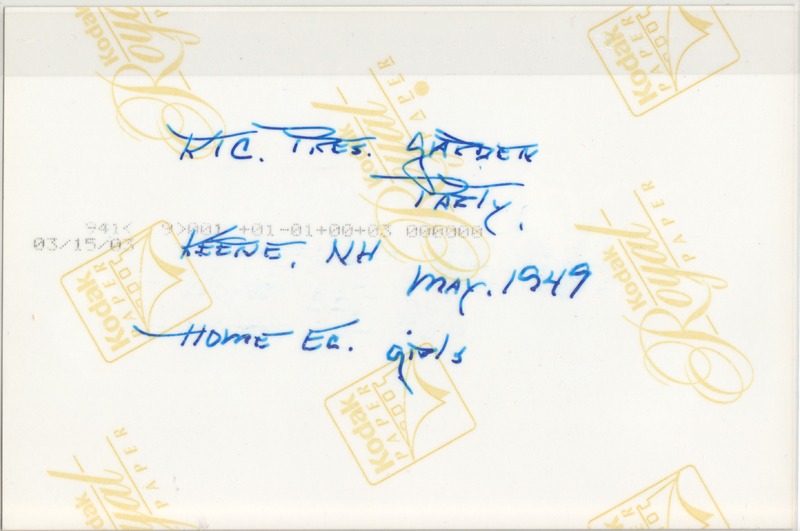 KTC. Pres. Garden
Party.
941< 9>001 +01-01+00+03 000000
03/15/03
Keene, NH
May. 1949
Home Ec. girls
Kodak
Royal
PAPER
Kodak
PAPER
Royal
PAPER
Royal
PAPER
Kodak
PAPER
Kodak
PAPER
Royal
PAPER
Kodak
PAPER